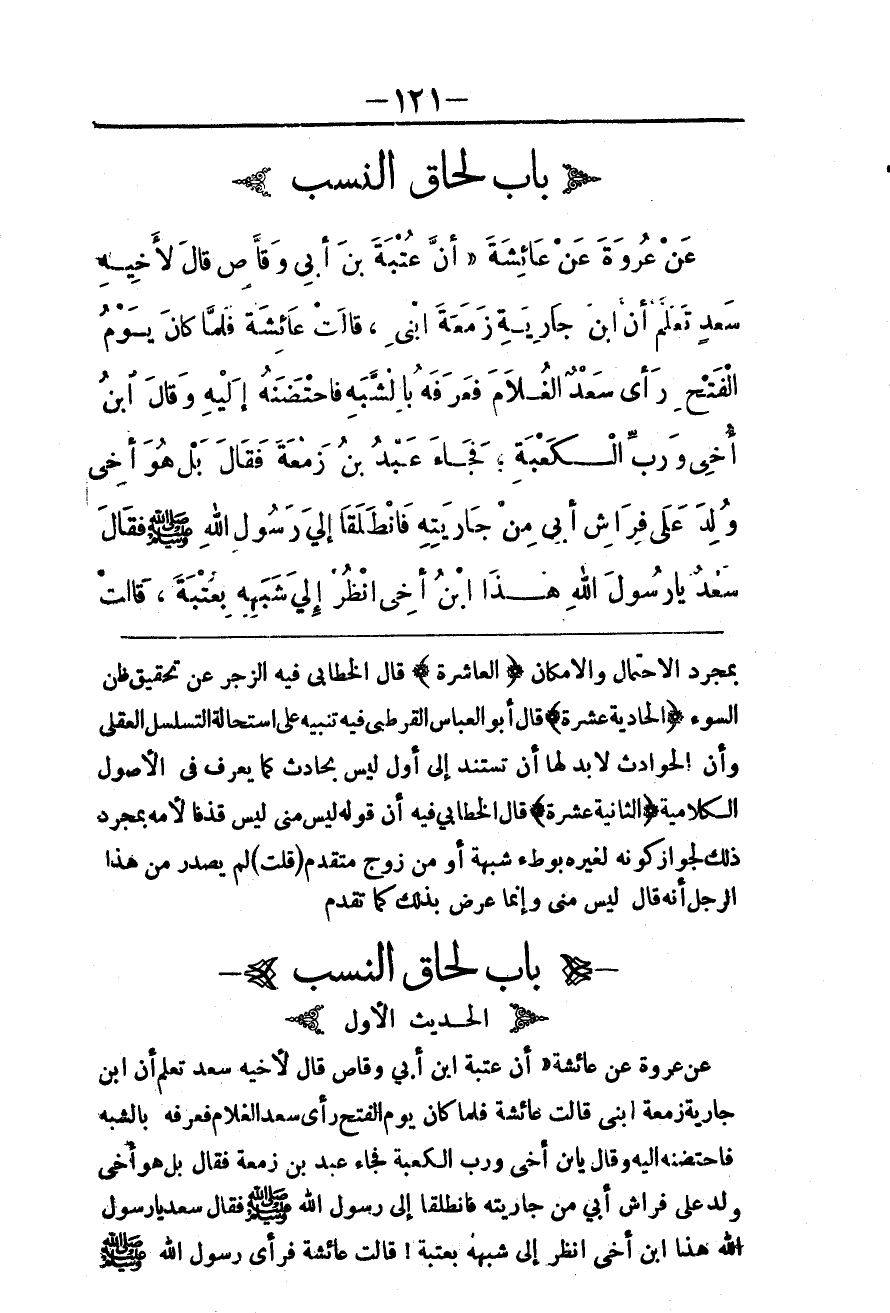 -١٢١-
باب لحاق النسب
عَنْ عُرْوَةَ عَنْ عَائِشَةَ « أَنَّ عُتْبَةَ بنَ أَبِي وَقَّاصٍ قالَ لأَخِيهِ
سَعدٍ تَعْلَمُ أَنَّ ابنَ جارِيَةِ زَمَعَةَ ابْنِى ، قالَتْ عائِشَة فَلَمَّا كانَ يَوْمُ
الْفَتْحِ رَأى سَعْدٌ الغُلاَمَ فَعَرَفَهُ بِالشَّبَهِ فاحْتَضَنَهُ إِلَيْهِ وَقالَ ابْنُ
أَخِى وَرَبِّ الْكَعْبَةِ ؛ فَجَاءَ عَبْدُ بنُ زَمْعَةَ فَقَالَ بَلْ هُوَ أخِى
وُلِدَ عَلَى فِرَاشِ أَبِى مِنْ جَارِيَتِهِ فَانْطَلَقَا إِلَي رَسُولِ اللهِ ﷺ فقَالَ
سَعْدُ يارَسُولَ اللهِ هذَا ابْنُ أَخِى انْظُرْ إِلَي شَبَهِهِ بِعُتْبَةَ ، قَالَتْ
بمجرد الاحتمال والامكان ﴿ العاشرة ﴾ قال الخطابى فيه الزجر عن تحقيق ظن
السوء ﴿الحادية عشرة﴾ قال أبو العباس القرطبى فيه تنبيه على استحالة التسلسل العقلى
وأن الحوادث لا بد لها أن تستند إلى أول ليس بحادث كما يعرف فى الأصول
الكلامية ﴿الثانية عشرة﴾ قال الخطابي فيه أن قوله ليس منى ليس قذفا لأمه بمجرد
ذلك لجواز كونه لغيره بوطء شبهة أو من زوج متقدم (قلت) لم يصدر من هذا
الرجل أنه قال ليس منى وإنما عرض بذلك كما تقدم
باب لحاق النسب
الحديث الأول
عن عروة عن عائشة « أن عتبة ابن أبي وقاص قال لأخيه سعد تعلم أن ابن
جارية زمعة ابنى قالت عائشة فلما كان يوم الفتح رأى سعد الغلام فعرفه بالشبه
فاحتضنه اليه وقال يابن أخى ورب الكعبة فجاء عبد بن زمعة فقال بل هو أخى
ولد على فراش أبي من جاريته فانطلقا إلى رسول الله ﷺ فقال سعد يارسول
الله هذا ابن أخى انظر إلى شبهه بعتبة ! قالت عائشة فرأى رسول الله ﷺ